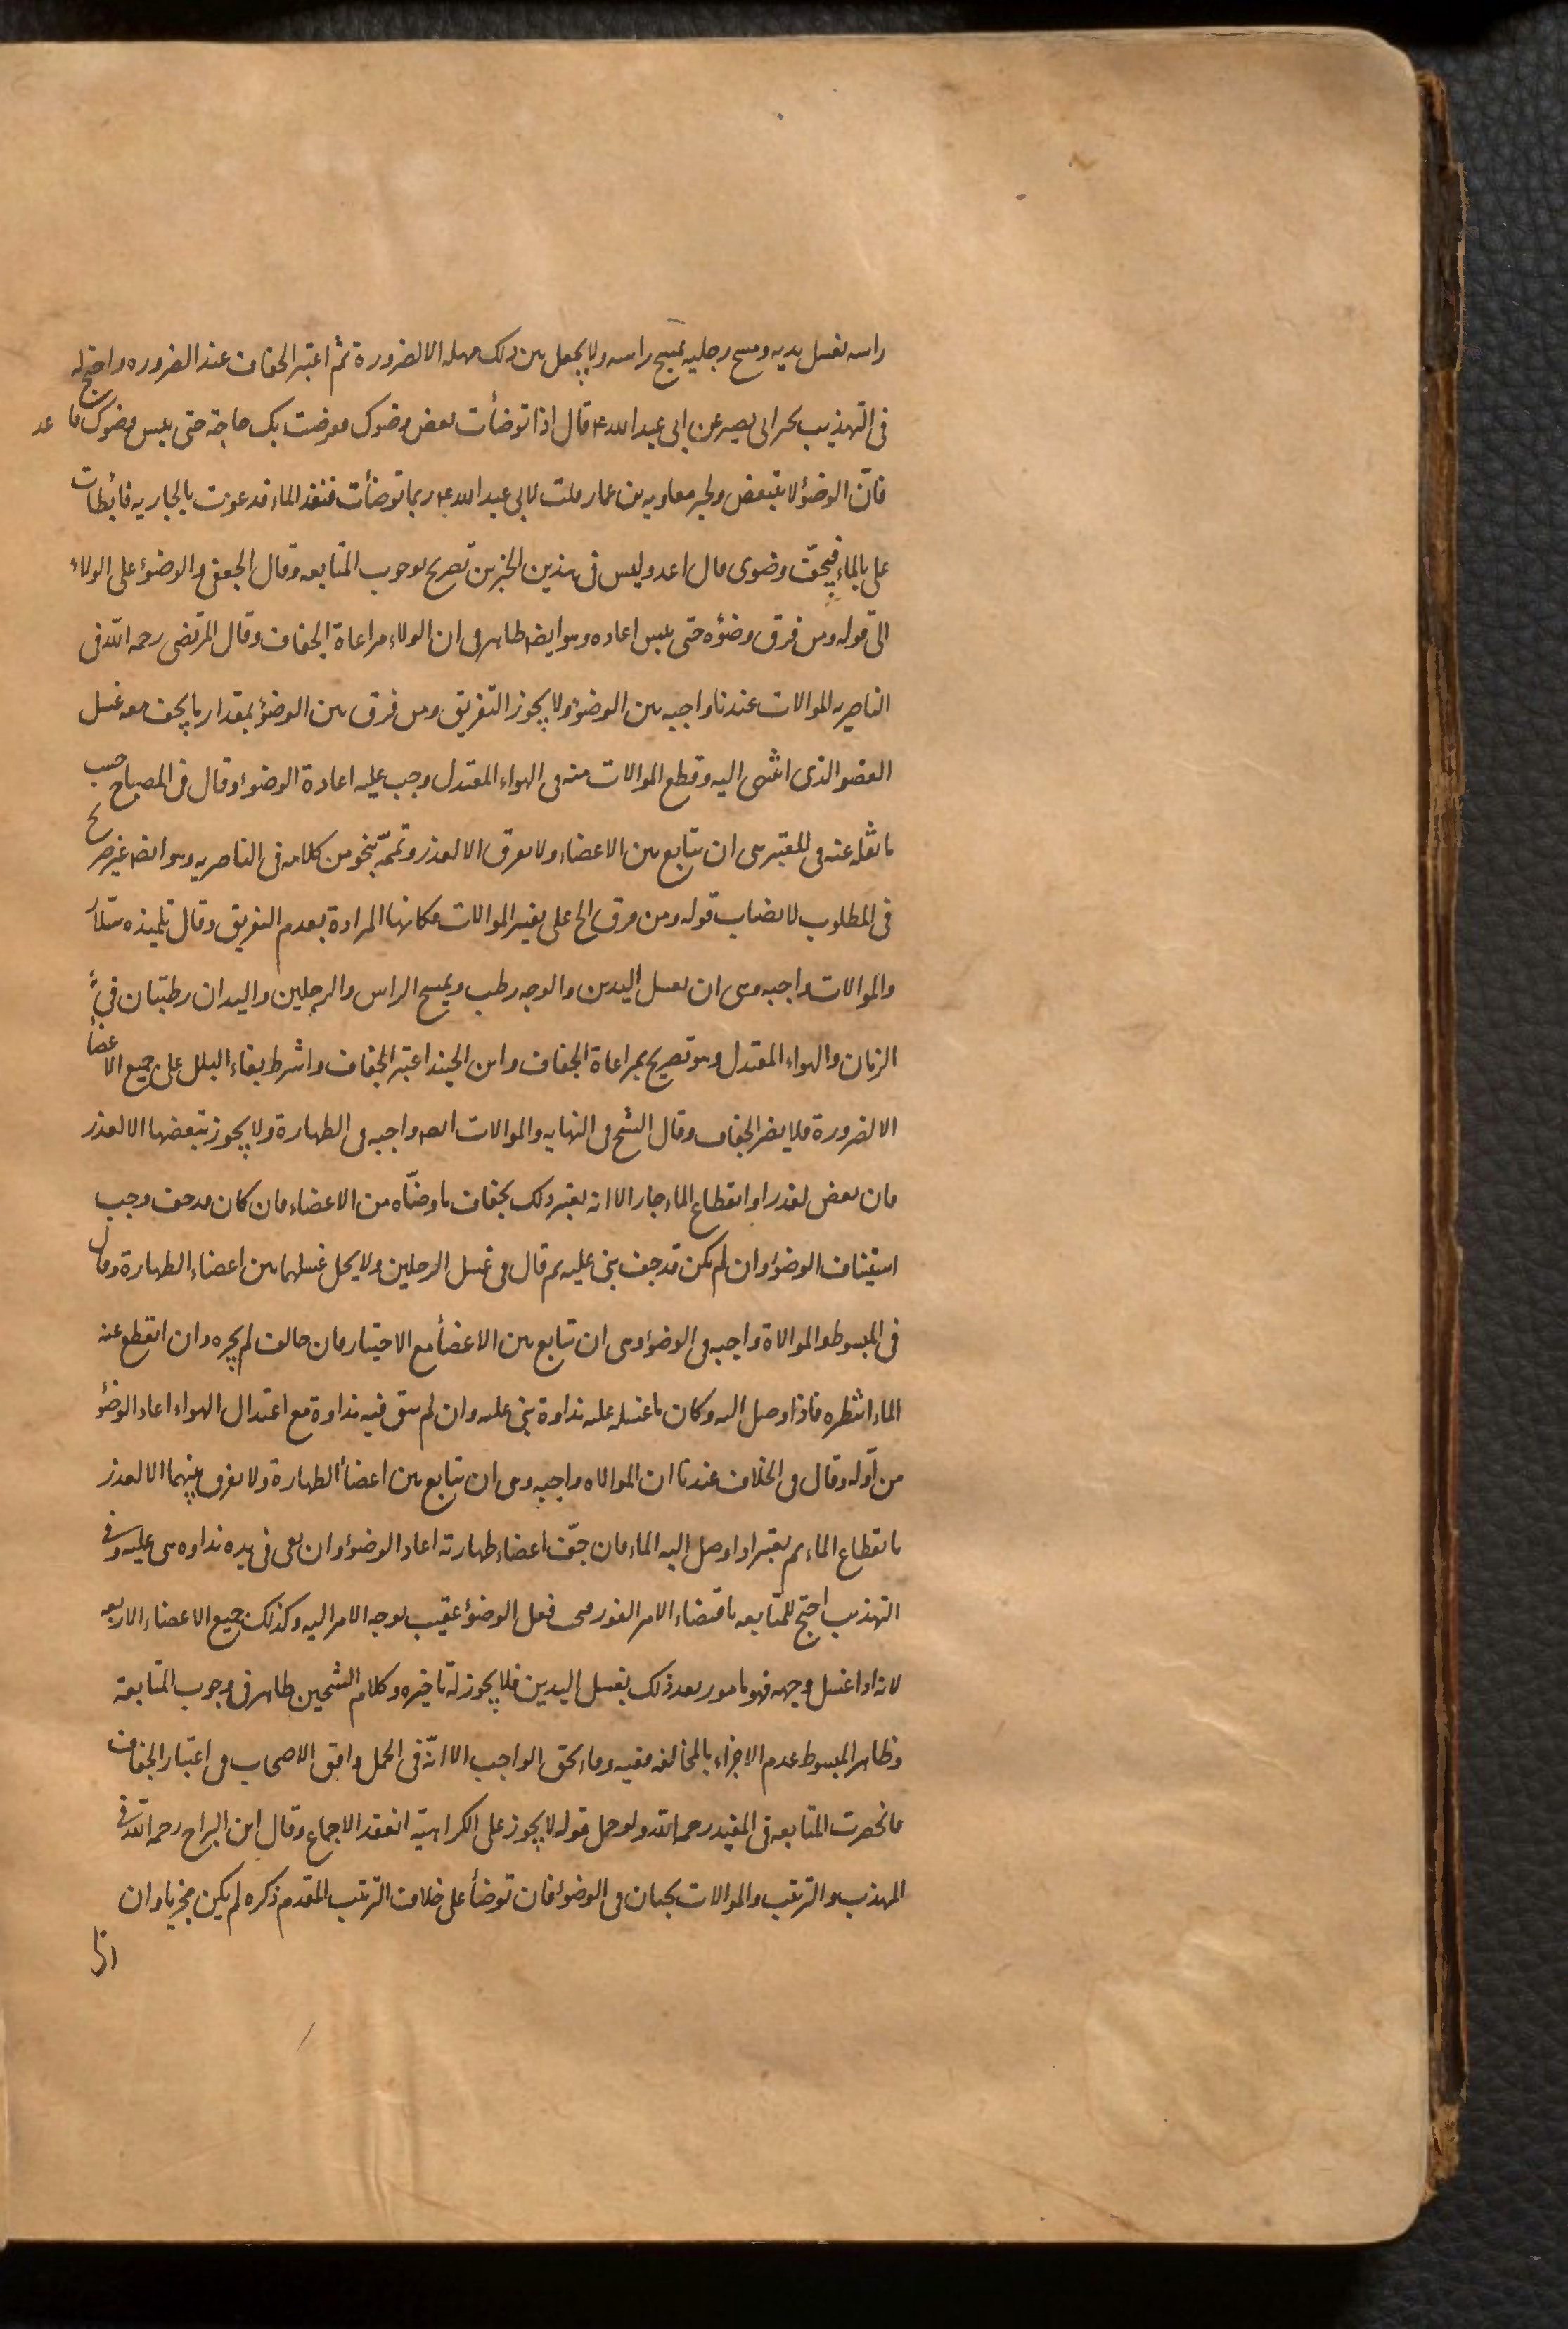 راسه بغسل يديه ومسح رجليه بمسح راسه ولا يجعل بين ذلك مهلة الا لضرورة ثم اعتبر الجفاف عند الضروره واحتج له
فى التهذيب بخبر ابى بصير عن ابى عبد الله ع قال اذا توضأت بعض وضوئك فعرضت بك حاجة حتى يبس وضوئك فاعد
فانّ الوضوء لا يتبعض ولخبر معاويه بن عمار قلت لابى عبد الله ع ربما توضأت فنفذ الماء فدعوت بالجاريه فابطات
على بالماء فيجفّ وضوئى قال اعد وليس فى هذين الخبرين تصريح لوجوب المتابعه وقال الجعفى والوضوء على الولاء
الى قوله ومن فرق وضؤه حتى يبس اعاده وهو ايضا ظاهر فى ان الولاء مراعاة الجفاف وقال المرتضى رحمه الله فى
الناصريه الموالات عندنا واجبه بين الوضوء ولا يجوز التفريق ومن فرق بين الوضوء بمقدار ما يجف معه غسل
العضو الذى انتهى اليه وقطع الموالات منه فى الهواء المعتدل وجب عليه اعادة الوضوء وقال فى المصباح حسب
ما نقله عنه فى المعتبر هى ان يتابع بين الاعضاء ولا يفرق الا لعذر وتممّه بنحو من كلامه فى الناصريه وهو ايضا غير صريح
فى المطلوب لانصباب قوله ومن فرق الخ على تفسير الموالات فكانها المرادة بعدم التفريق وقال تلميذه سلّار
والموالات واجبه وهى ان يغسل اليدين والوجه رطب ويمسح الراس والرجلين واليدان رطبتان فى
الزمان والهواء المعتدل وهو تصريح بمراعاة الجفاف وابن الجنيد اعتبر الجفاف واشرط بقاء البلل على جميع الاعضاء
الا لضرورة فلا يضر الجفاف وقال الشيخ فى النهايه والموالات ايضا واجبه فى الطهارة ولا يجوز تبعضها الا لعذر
فان بعض لعذر او انقطاع الماء جاز الا انه يعتبر ذلك بجفاف ما وضّاه من الاعضاء فان كان قد جف وجب
استيناف الوضوء وان لم يكن قد جف بنى عليه ثم قال فى غسل الرجلين ولا يخل غسلهما بين اعضاء الطهارة وقال
فى المبسوط والموالاة واجبه فى الوضوء وهى ان يتابع بين الاعضأ مع الاختيار فان خالف لم يجزه وان انقطع عنه
الماء انتظره فاذا وصل اليه وكان ما غسله عليه نداوة بنى عليه وان لم يبق فيه نداوة مع اعتدال الهواء اعاد الوضؤ
من اوّله وقال فى الخلاف عندنا ان الموالاه واجبه وهى ان يتابع بين اعضأ الطهارة ولا يفرق بينهما الا لعذر
بانقطاع الماء ثم يعتبر اذا وصل اليه الماء فان جفّت اعضاء طهارته اعاد الوضوء وان بقى فى يده نداوه بنى عليه وفى
التهذيب احتج للمتابعه باقتضاء الامر الفور فيجب فعل الوضوء عقيب توجه الامر اليه وكذلك جميع الاعضاء الاربعه
لانه اذا غسل وجهه فهو مامور بعد ذلك بغسل اليدين فلا يجوز له تاخيره وكلام الشيخين ظاهر فى وجوب المتابعة
وظاهر المبسوط عدم الاجزاء بالمخالفه ففيه وفاء بحق الواجب الا انّه فى الجمل وافق الاصحاب فى اعتبار الجفاف
فانحصرت المتابعه فى المفيد رحمه الله ولو حمل قوله لا يجوز على الكراهية انعقد الاجماع وقال ابن البراج رحمه الله فى
المهذب والترتيب والموالات يجبان فى الوضوء فان توضأ على خلاف الترتيب المقدم ذكره لم يكن مجزيا وان